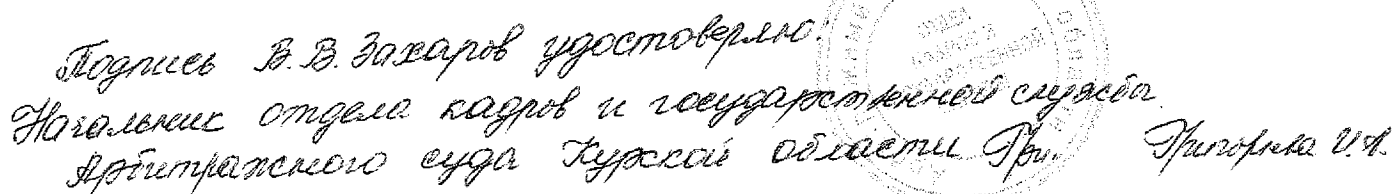 Подпись В.В. Захаров удостоверяю:
Начальник отдела кадров и государственной службы
Арбитражного суда Курской области Гри. И.А.